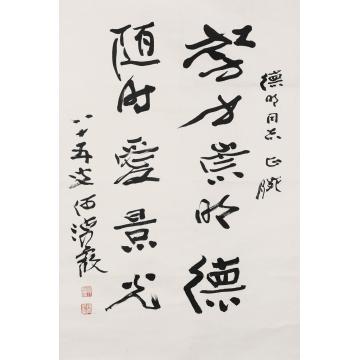 德明同志正腕
努力崇明德
随时愛景光
八十五叟何海霞